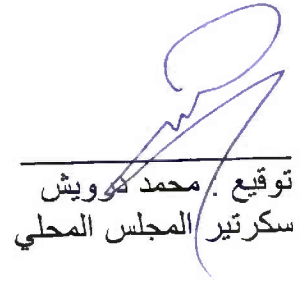 توقيع . محمد درويش
سكرتير المجلس المحلي